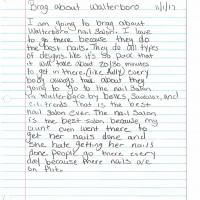 Brag about Walterboro 11/1/17
I am going to brag about
Walterboro nail salon. I love
to go there because they do
the best nails. They do all types
of designs, like it's so pack that
it will take about 20/30 minutes
to get in there. (like Ally) every
body always talk about they
going to go to the nail salon
in Walterboro by belks, and
c.t. trends. That is the best
nail salon ever. The nail Salon
is the best salon because my
aunt even went there to
get her nails done and
She hate getting her nails
done. People go there every
day because there nails are
on